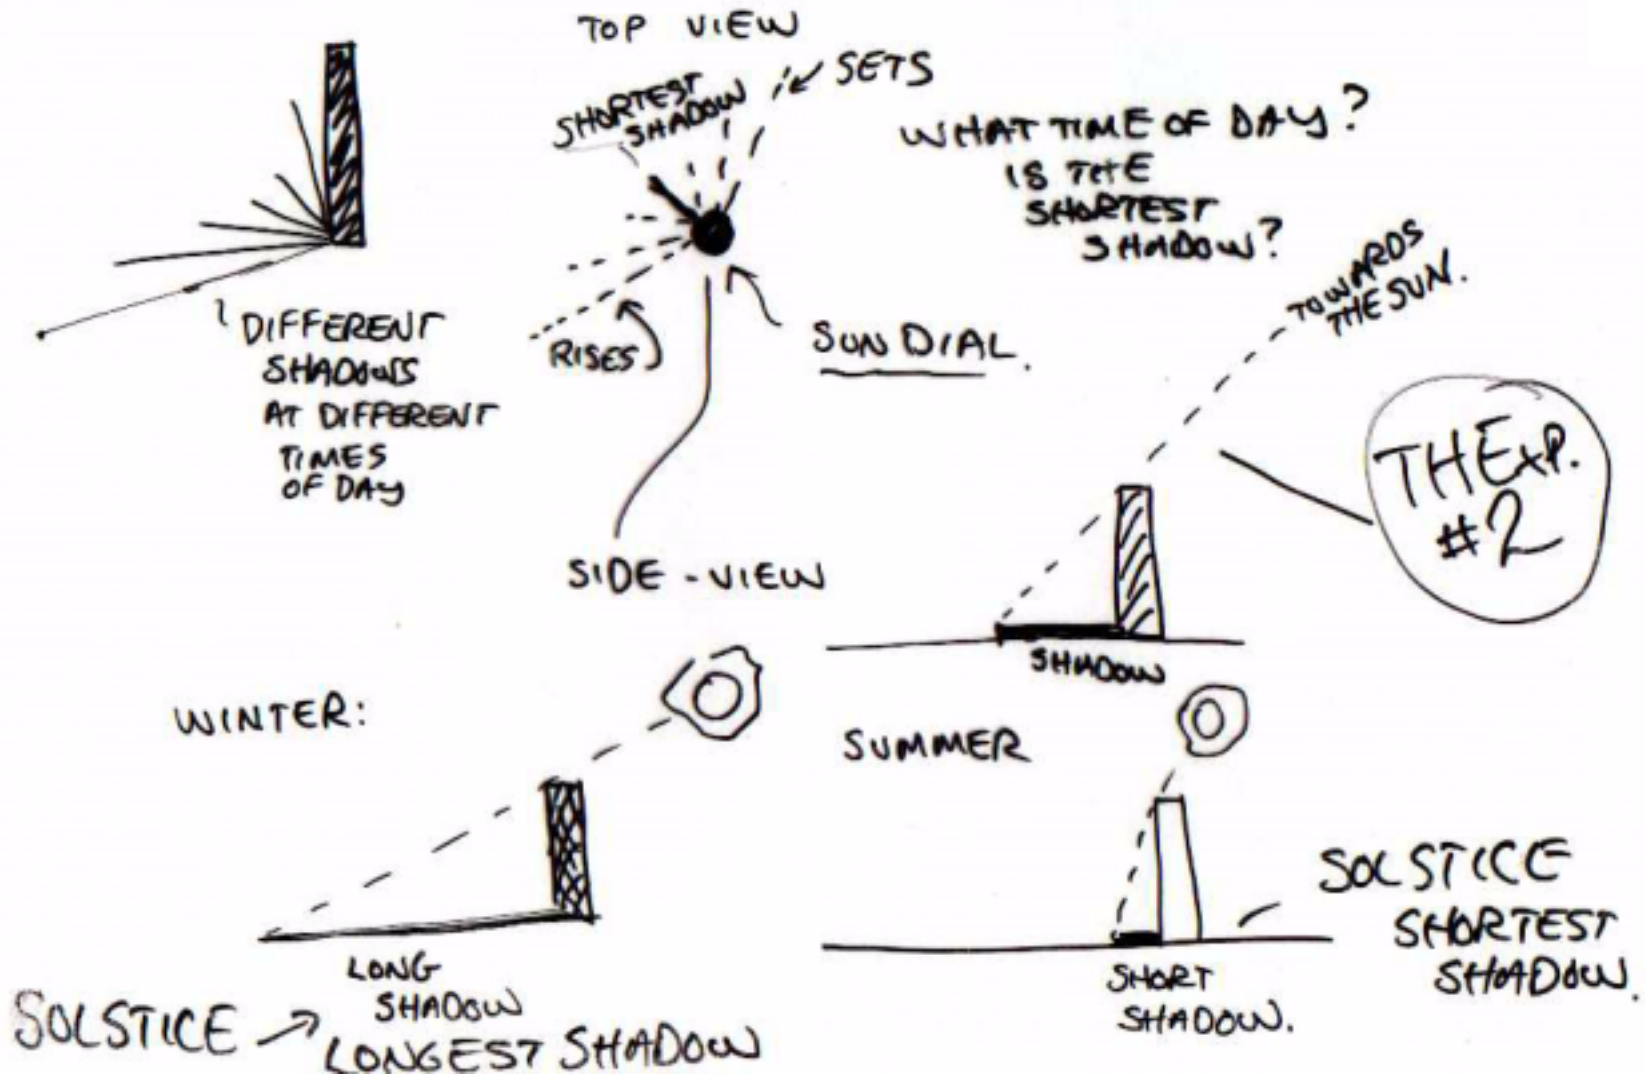 TOP VIEW
SHORTEST
SHADOW
SETS
WHAT TIME OF DAY?
IS THE
SHORTEST
SHADOW?
DIFFERENT
SHADOWS
AT DIFFERENT
TIMES
OF DAY
RISES
SUN DIAL.
TOWARDS
THE SUN.
THExP.
#2
SIDE-VIEW
SHADOW
WINTER:
LONG
SHADOW
SOLSTICE → LONGEST SHADOW
SUMMER
SHORT
SHADOW.
SOLSTICE
SHORTEST
SHADOW.